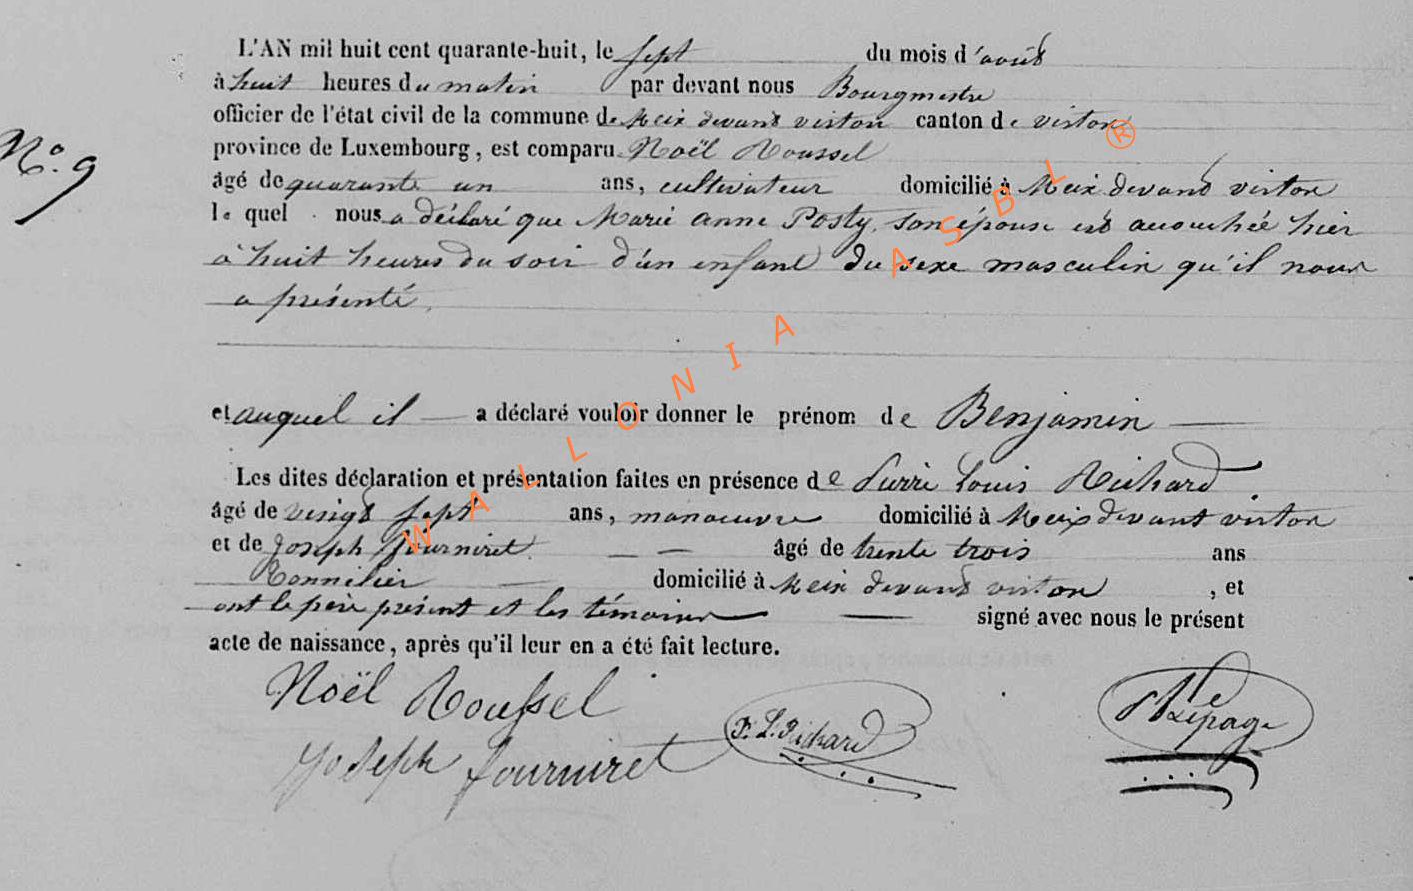 L'AN mil huit cent quarante-huit, le sept du mois d'août
à huit heures du matin par devant nous Bourgmestre
officier de l'état civil de la commune de Meix devant virton canton de virton
N° 9
province de Luxembourg, est comparu Noël Roussel
âgé de quarante un ans, cultivateur domicilié à Meix devant virton
le quel nous a déclaré que Marie anne Posty, son épouse est accouchée hier
à huit heures du soir d'un enfant du sexe masculin qu'il nous
a présenté.
et auquel il a déclaré vouloir donner le prénom de Benjamin
Les dites déclaration et présentation faites en présence de Pierre Louis Richard
âgé de vingt sept ans, manoeuvre domicilié à Meix devant virton
et de Joseph fourniret âgé de trente trois ans
domicilié à Meix devant virton, et
ont le père présent et les témoins signé avec nous le présent
acte de naissance, après qu'il leur en a été fait lecture.
Noël Roussel
P. L. Richard
Lepage
Joseph fourniret
WALLONIA ASBL ®